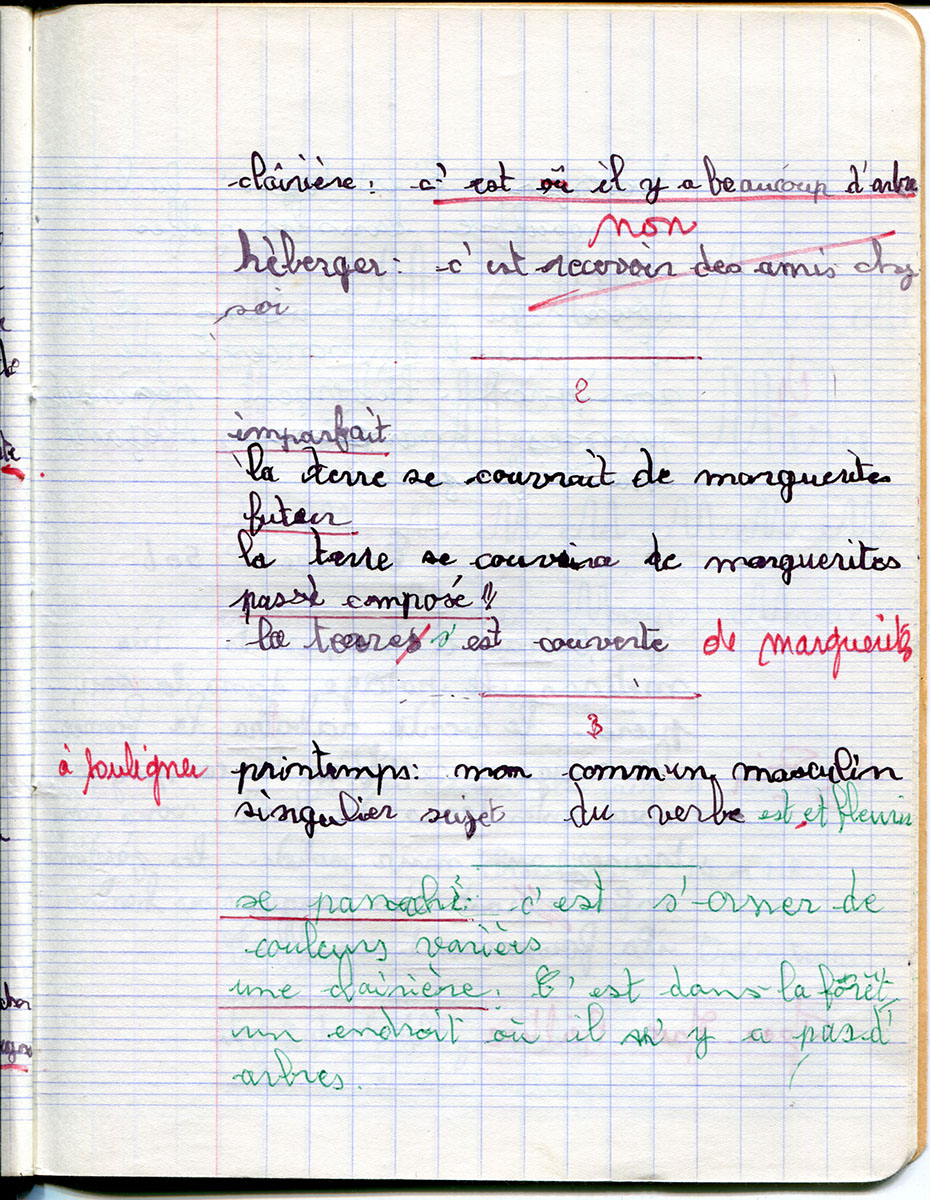 clâirière : c'est où il y a beaucoup d'arbre
non
héberger : c'est recevoir des amis chez
soi
2
imparfait
la terre se couvrait de marguerites
futur
la terre se couvrira de marguerites
passé composé !!
la terres s'est couverte de marguerites
3
à souligner printemps : mon commun, masculin
singulier sujet du verbe est, et fleuris
se panaché : c'est s'orner de
couleurs variérs
une clairière : C'est dans la forêt,
un endroit où il n'y a pas d'
arbres.